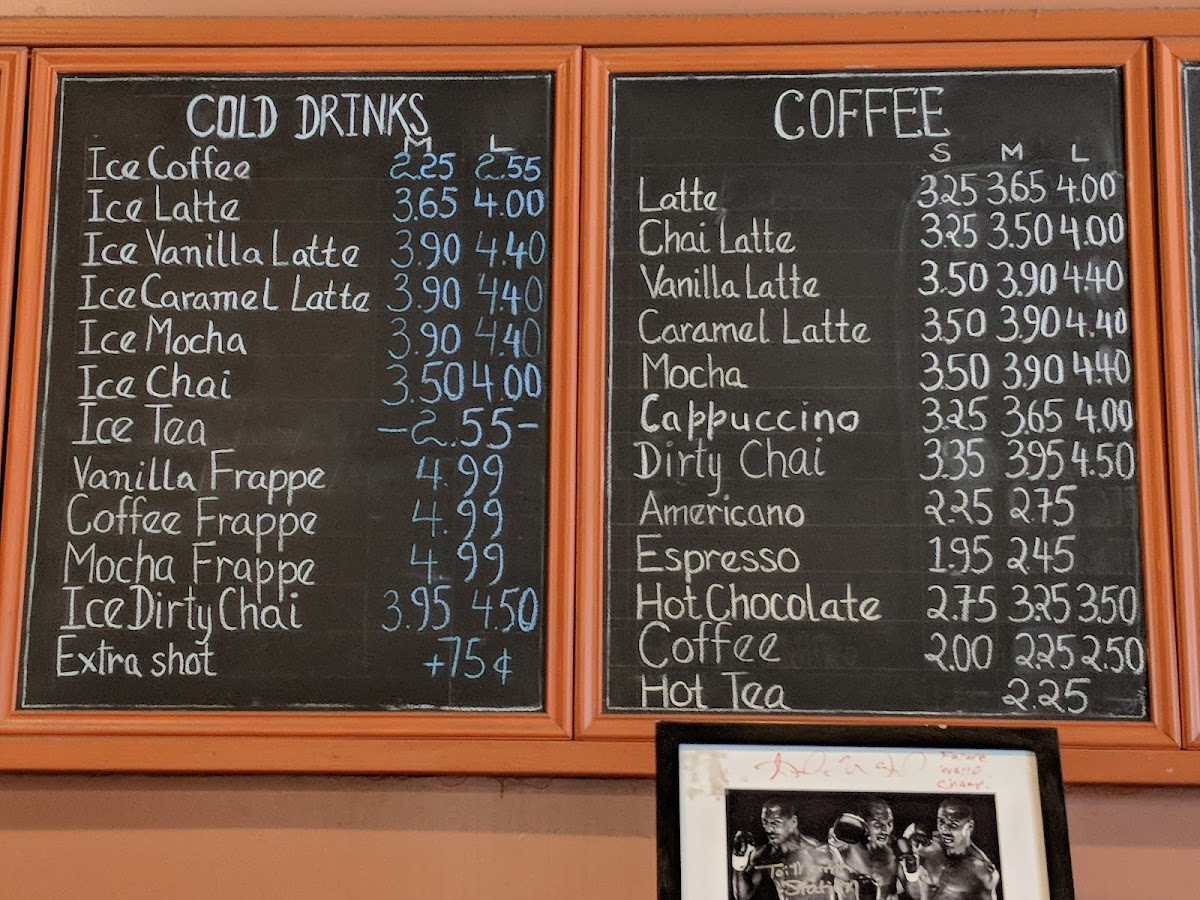 COLD DRINKS
M L
Ice Coffee 2.25 2.55
Ice Latte 3.65 4.00
Ice Vanilla Latte 3.90 4.40
Ice Caramel Latte 3.90 4.40
Ice Mocha 3.90 4.40
Ice Chai 3.50 4.00
Ice Tea -2.55-
Vanilla Frappe 4.99
Coffee Frappe 4.99
Mocha Frappe 4.99
Ice Dirty Chai 3.95 4.50
Extra shot +75¢
COFFEE
S M L
Latte 3.25 3.65 4.00
Chai Latte 3.25 3.50 4.00
Vanilla Latte 3.50 3.90 4.40
Caramel Latte 3.50 3.90 4.40
Mocha 3.50 3.90 4.40
Cappuccino 3.25 3.65 4.00
Dirty Chai 3.35 3.95 4.50
Americano 2.25 2.75
Espresso 1.95 2.45
Hot Chocolate 2.75 3.25 3.50
Coffee 2.00 2.25 2.50
Hot Tea 2.25
World
Champ.
To:
Station